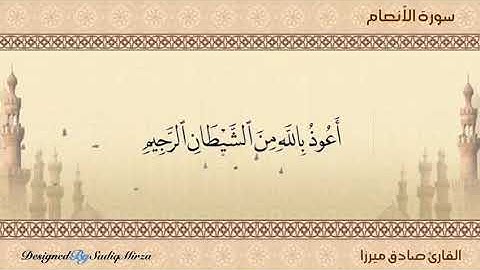 سورة الأنعام
أَعُوذُ بِاللَّهِ مِنَ الشَّيْطَانِ الرَّجِيمِ
DesignedBySadiqMirza
القارئ صادق ميرزا